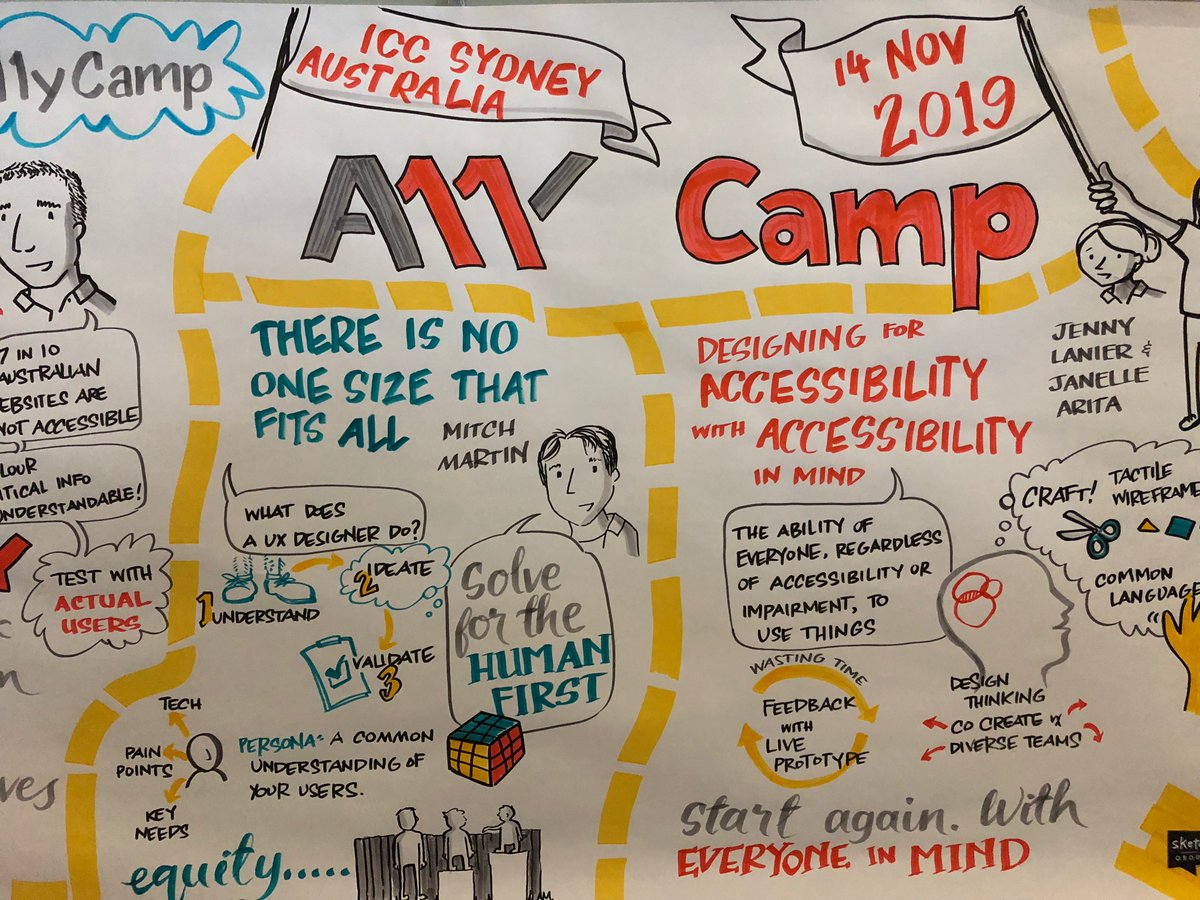 11yCamp
ICC SYDNEY
AUSTRALIA
14 NOV
2019
A11Y Camp
7 IN 10
AUSTRALIAN
WEBSITES ARE
NOT ACCESSIBLE
UNDERSTANDABLE!
TEST WITH
ACTUAL
USERS
THERE IS NO
ONE SIZE THAT
FITS ALL
MITCH
MARTIN
WHAT DOES
A UX DESIGNER DO?
1 UNDERSTAND
2 IDEATE
VALIDATE
3
Solve
for the
HUMAN
FIRST
TECH
PAIN
POINTS
KEY
NEEDS
PERSONA: A COMMON
UNDERSTANDING OF
YOUR USERS.
equity.....
AM.
DESIGNING FOR
ACCESSIBILITY
WITH ACCESSIBILITY
IN MIND
JENNY
LANIER &
JANELLE
ARITA
THE ABILITY OF
EVERYONE, REGARDLESS
OF ACCESSIBILITY OR
IMPAIRMENT, TO
USE THINGS
CRAFT! TACTILE
WIREFRAME
COMMON
LANGUAGE
WASTING TIME
FEEDBACK
WITH
LIVE
PROTOTYPE
DESIGN
THINKING
CO CREATE
DIVERSE TEAMS
start again. With
EVERYONE IN MIND